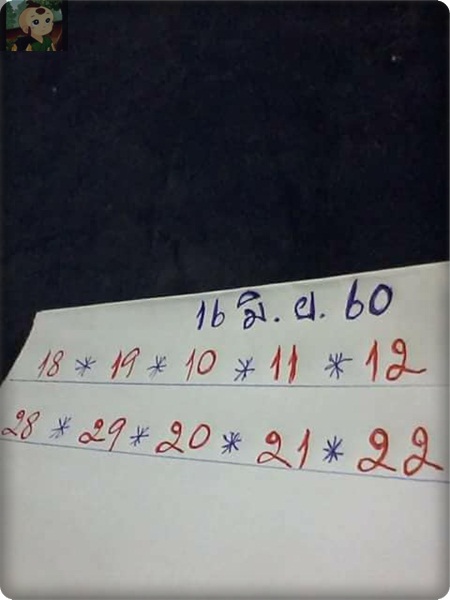 16 มิ.ย. 60
18 * 19 * 10 * 11 * 12
28 * 29 * 20 * 21 * 22